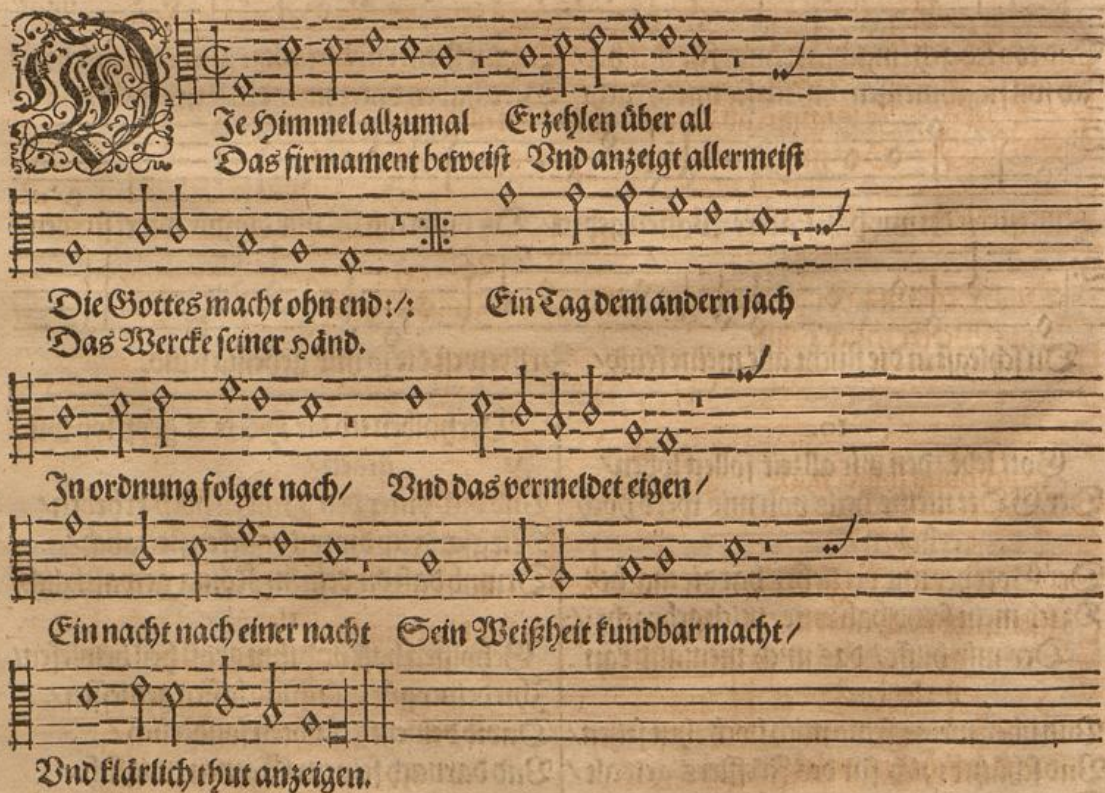 DJe Himmel allzumal Erzehlen über all
Das firmament beweist Vnd anzeigt allermeist
Die Gottes macht ohn end:/: Ein Tag dem andern jach
Das Wercke seiner Händ.
Jn ordnung folget nach/ Vnd das vermeldet eigen/
Ein nacht nach einer nacht Sein Weißheit kundbar macht/
Vnd klärlich thut anzeigen.